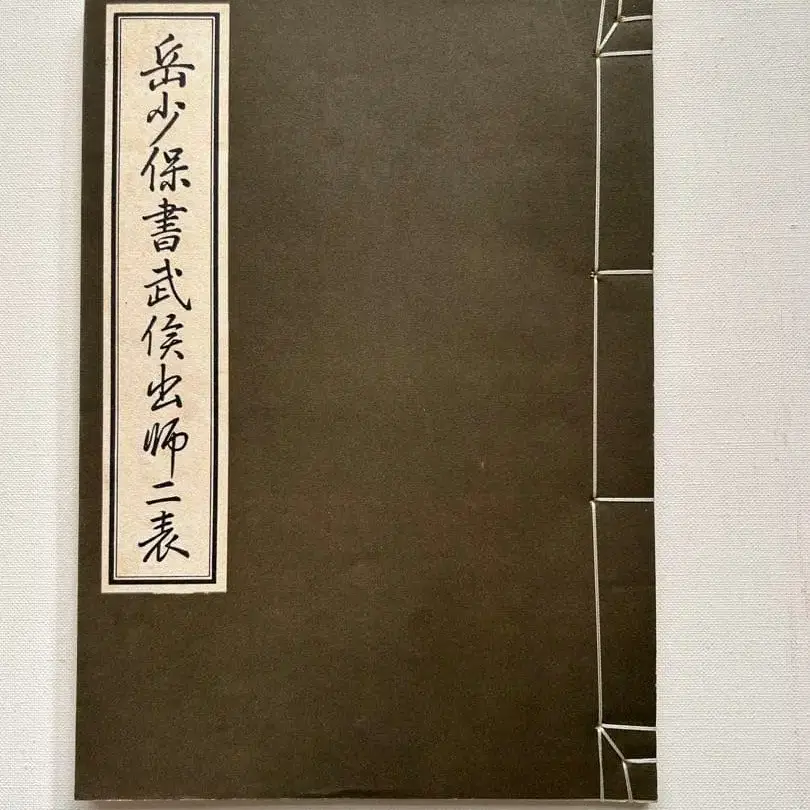 岳少保書武侯出师二表